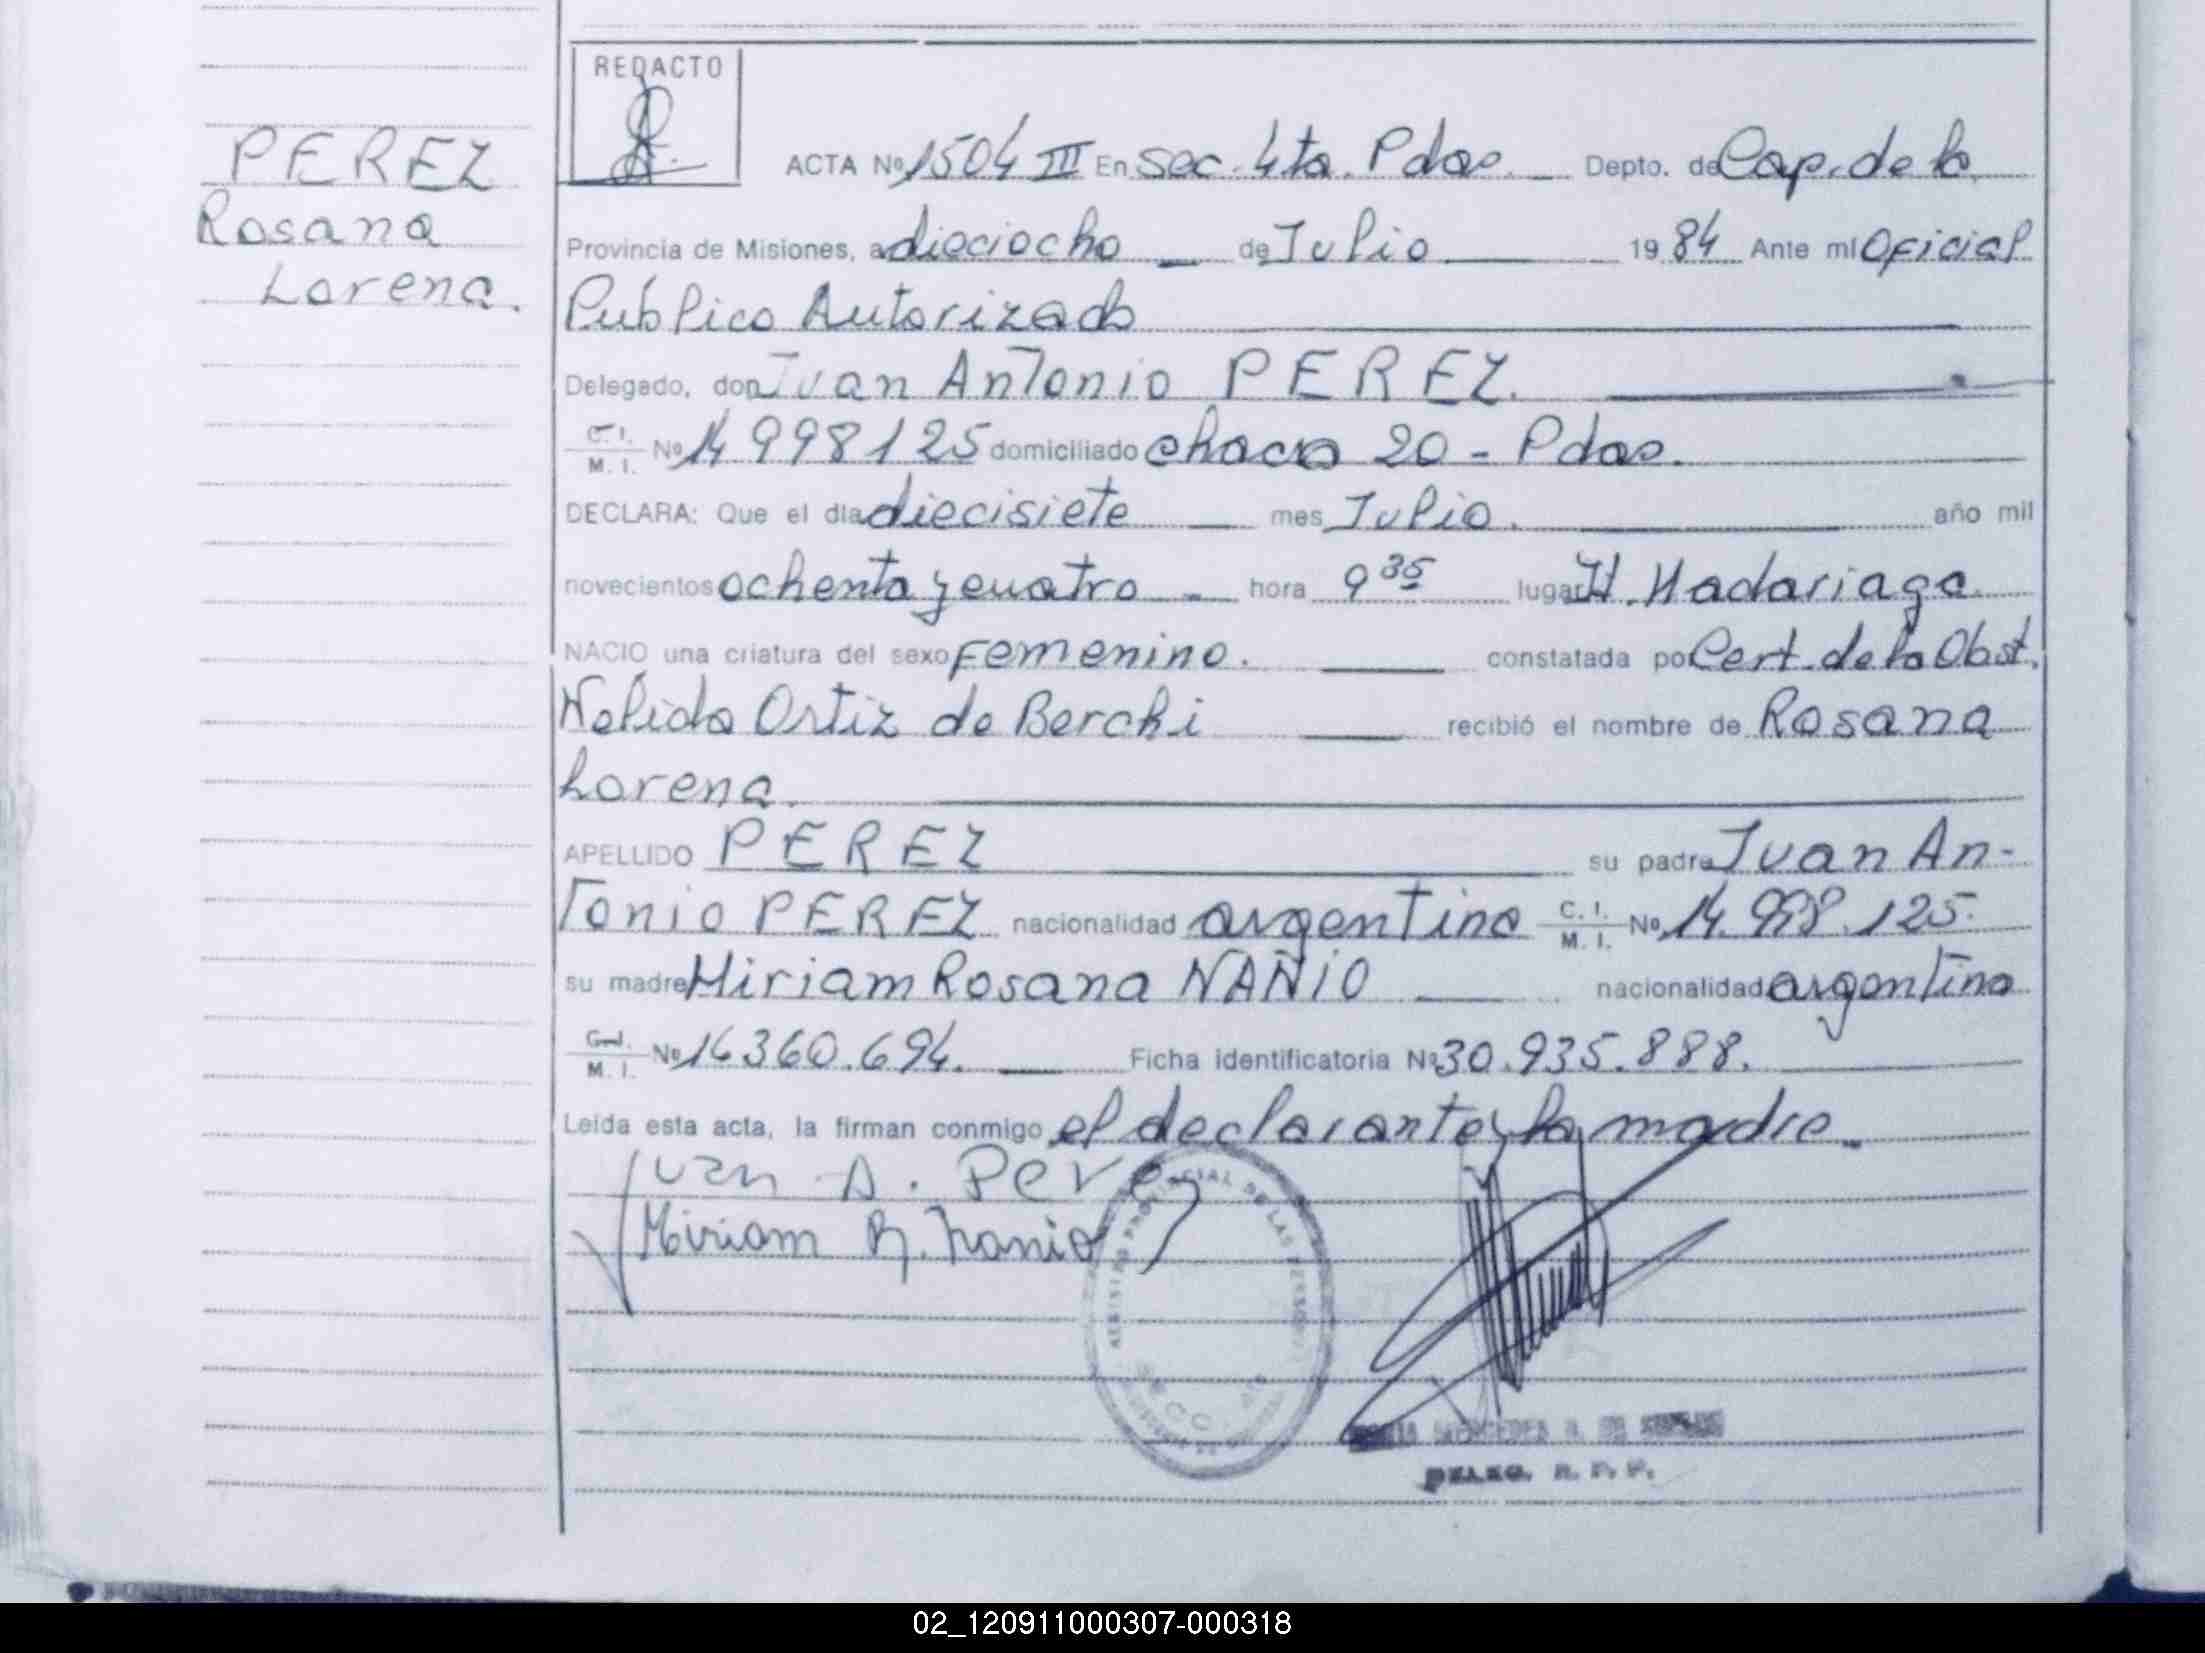 REDACTO
PEREZ
Rosana
Lorena.
ACTA Nº 1504 III En Sec. 4ta. Pdas. Depto. de Cap. de la
Provincia de Misiones, a dieciocho de Julio 1984 Ante mí Oficial
Publico Autorizado
Delegado, don Juan Antonio PEREZ.
C. I. M. I. Nº 14 998125 domiciliado chaco 20 - Pdas.
DECLARA: Que el día diecisiete mes Julio. año mil
novecientos ochenta y cuatro - hora 9 35 lugar H. Madariaga.
NACIO una criatura del sexo Femenino. constatada por Cert. de la Obst.
Nelida Ortiz de Berchi recibió el nombre de Rosana
Lorena.
APELLIDO PEREZ su padre Juan An-
tonio PEREZ nacionalidad argentino C. I. M. I. Nº 14.998.125.
su madre Miriam Rosana NAÑIO nacionalidad argentina
C. I. M. I. Nº 16360.694. Ficha identificatoria Nº 30.935.888.
Leída esta acta, la firman conmigo el declarante y la madre.
Juan A. Perez
Miriam R. Nanio
PROVINCIAL DE LAS
MERCEDES
DELEG. R. P. P.
02_120911000307-000318